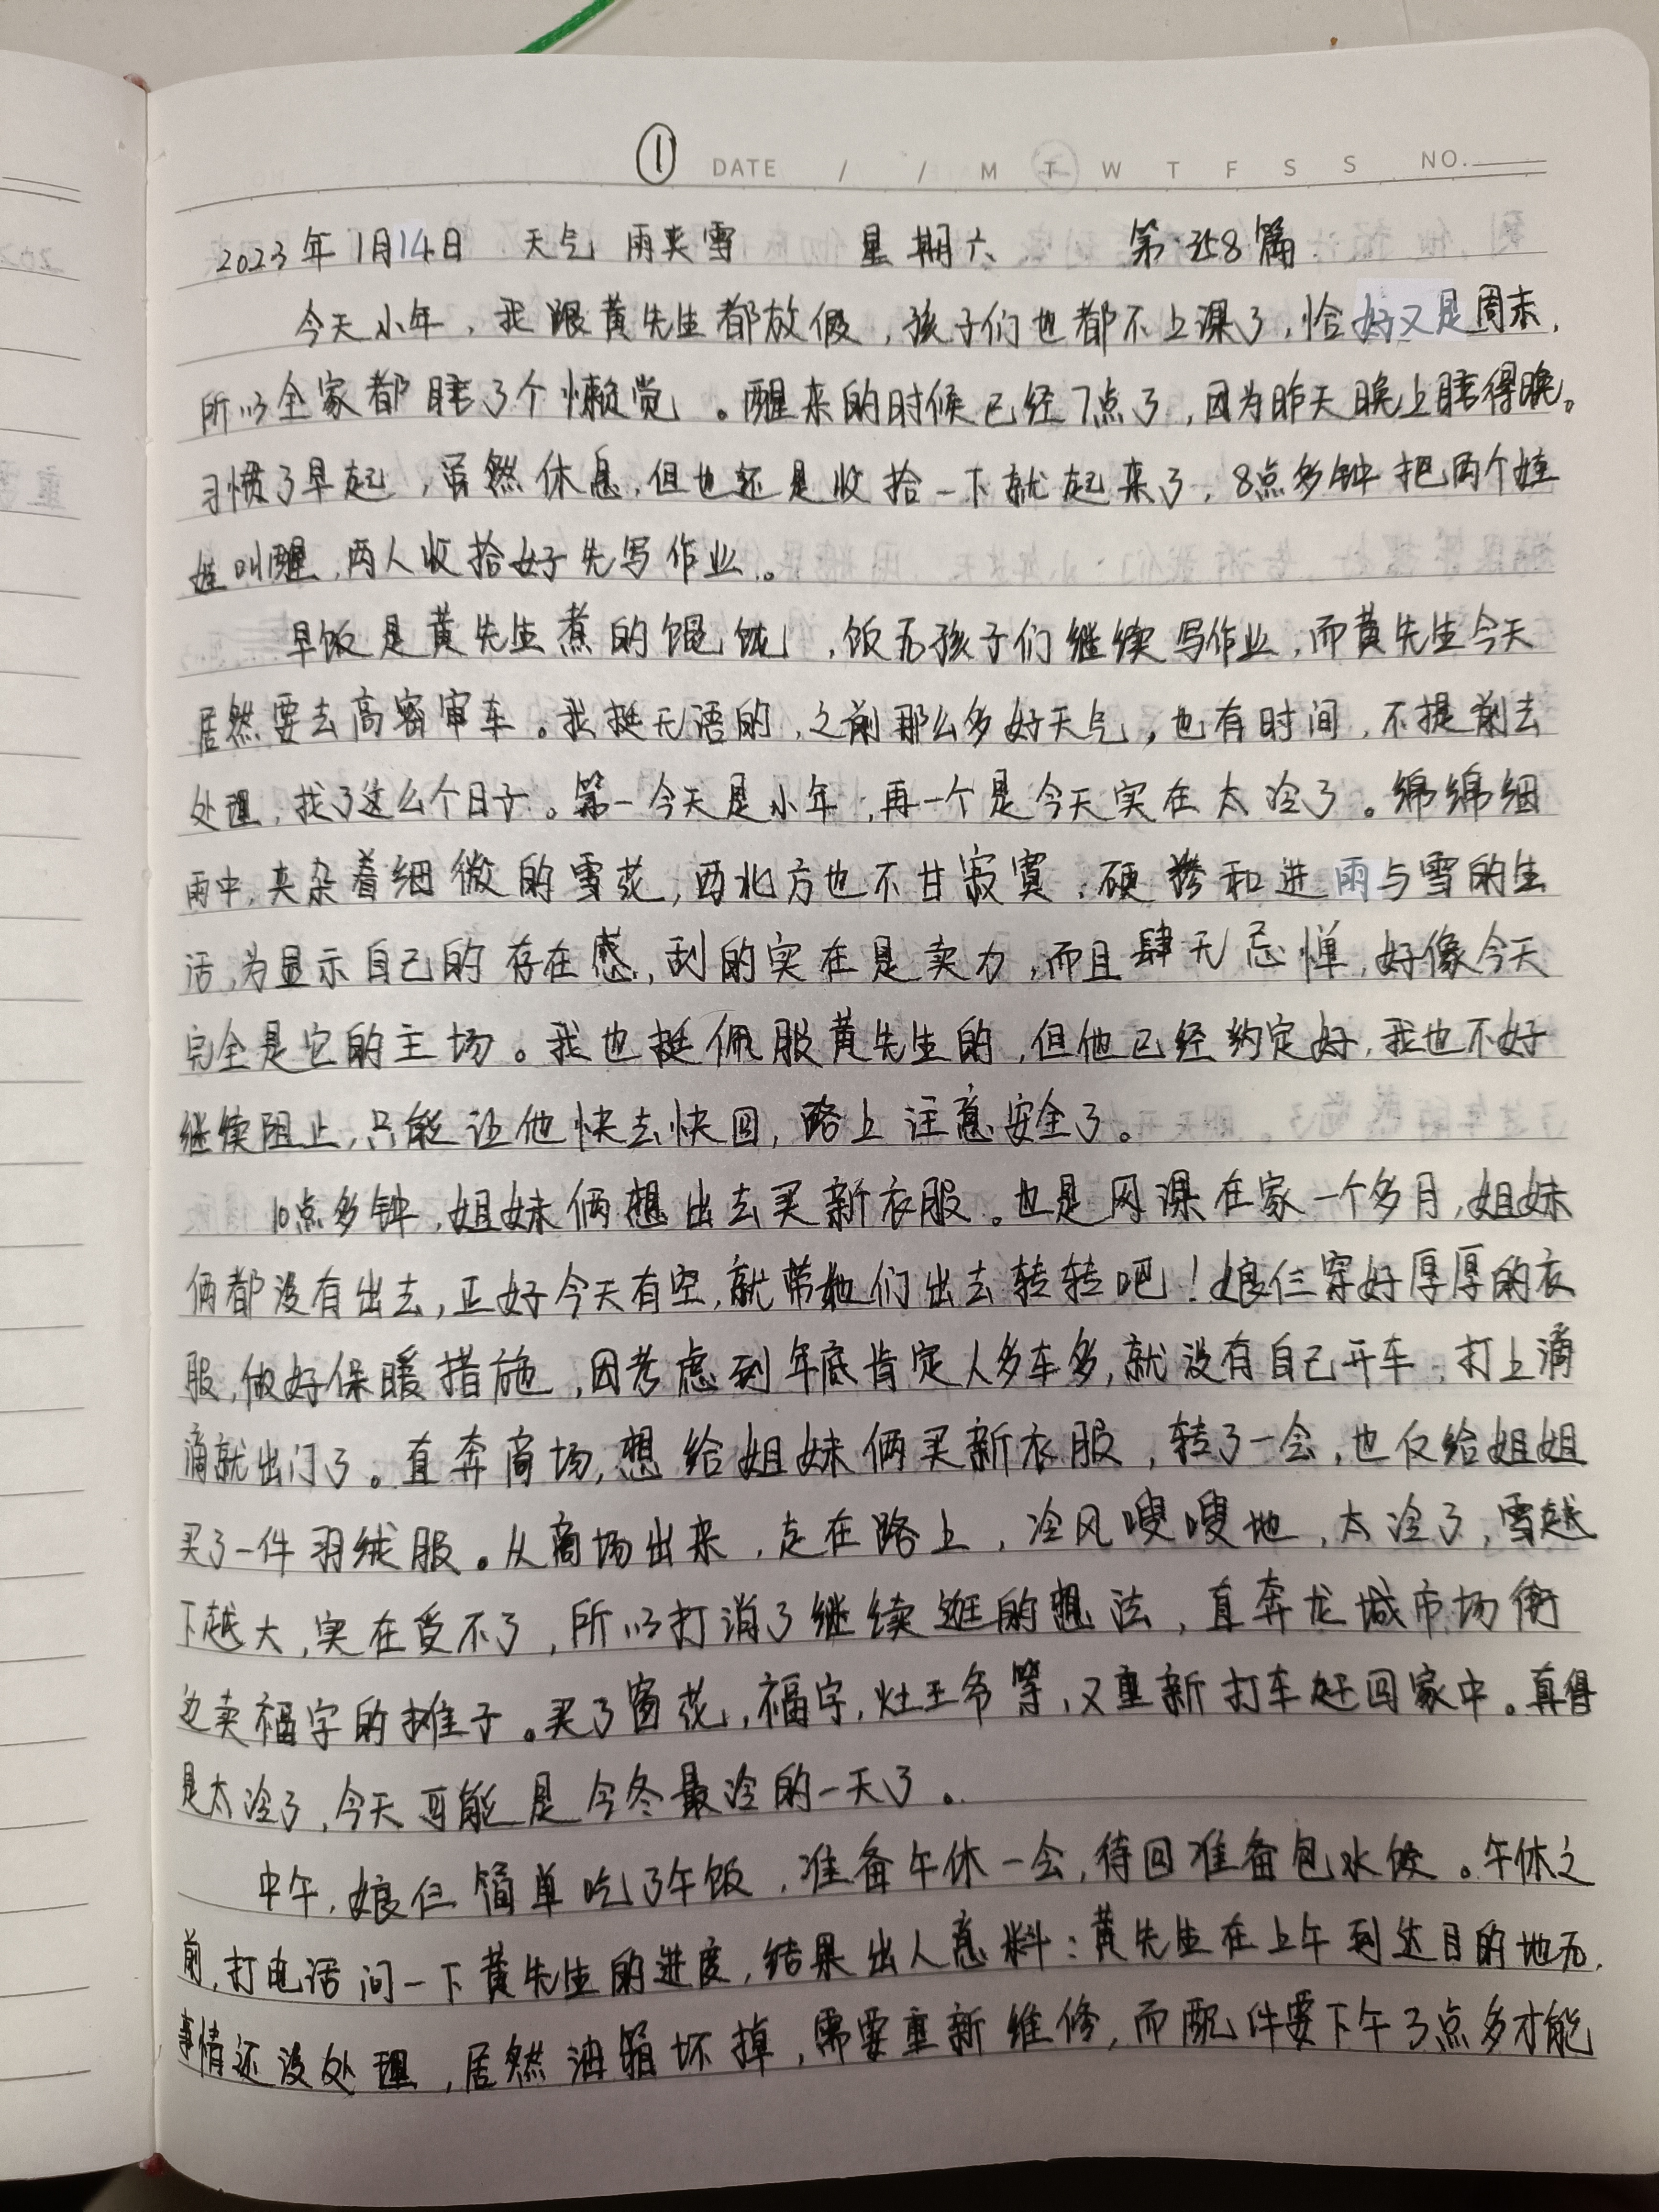 ① DATE / / M T W T F S S NO.
2023年1月14日 天气 雨夹雪 星期六 第358篇
今天小年，我跟黄先生都放假，孩子们也都不上课了，恰好又是周末，
所以全家都睡了个懒觉。醒来的时候已经7点了，因为昨天晚上睡得晚。
习惯了早起，虽然休息，但也还是收拾一下就起来了，8点多钟把两个娃
娃叫醒，两人收拾好先写作业。
早饭是黄先生煮的馄饨，饭后孩子们继续写作业，而黄先生今天
居然要去高密审车。我挺无语的，之前那么多好天气，也有时间，不提前去
处理，找了这么个日子。第一今天是小年，再一个是今天实在太冷了。绵绵细
雨中，夹杂着细微的雪花，西北方也不甘寂寞，硬掺和进雨与雪的生
活，为显示自己的存在感，刮的实在是卖力，而且肆无忌惮，好像今天
完全是它的主场。我也挺佩服黄先生的，但他已经约定好，我也不好
继续阻止，只能让他快去快回，路上注意安全了。
10点多钟，姐妹俩想出去买新衣服。也是网课在家一个多月，姐妹
俩都没有出去，正好今天有空，就带她们出去转转吧！娘仨穿好厚厚的衣
服，做好保暖措施，因考虑到年底肯定人多车多，就没有自己开车，打上滴
滴就出门了。直奔商场，想给姐妹俩买新衣服，转了一会，也仅给姐姐
买了一件羽绒服。从商场出来，走在路上，冷风嗖嗖地，太冷了，雪越
下越大，实在受不了，所以打消了继续逛的想法，直奔龙城市场街
边卖福字的摊子。买了窗花，福字，灶王爷等，又重新打车赶回家中。真得
是太冷了，今天可能是今冬最冷的一天了。
中午，娘仨简单吃了午饭，准备午休一会，待回准备包水饺。午休之
前，打电话问一下黄先生的进度，结果出人意料：黄先生在上午到达目的地后，
事情还没处理，居然油箱坏掉，需要重新维修，而配件要下午3点多才能